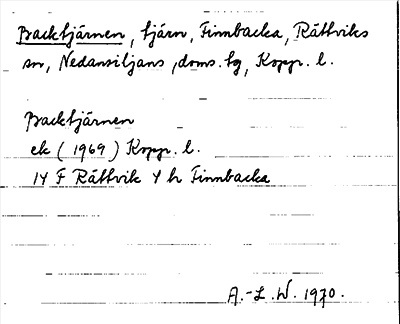 Backtjärnen, tjärn, Finnbacka, Rättviks
sn, Nedansiljans doms. tg, Kopp. l.
Backtjärnen
ek (1969) Kopp. l.
14 F Rättvik 4 h Finnbacka
A.-L. W. 1970.